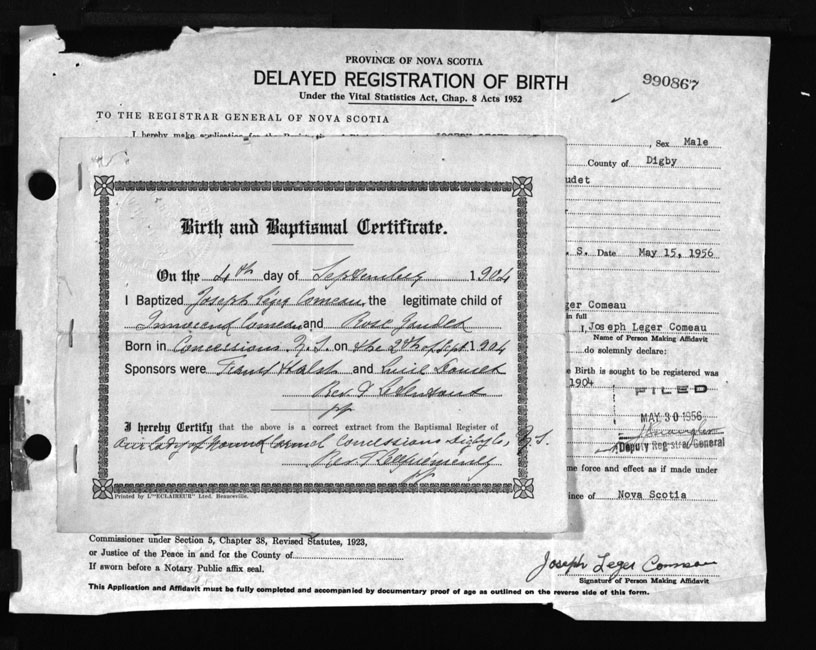 PROVINCE OF NOVA SCOTIA
DELAYED REGISTRATION OF BIRTH
990867
Under the Vital Statistics Act, Chap. 8 Acts 1952
TO THE REGISTRAR GENERAL OF NOVA SCOTIA
I hereby make application for the
, Sex Male
County of Digby
udet
. S. Date May 15, 1956
Birth and Baptismal Certificate.
On the 4th day of September 1904
I Baptized Joseph Léger Comeau the legitimate child of
Innocent Comeau and Rose Gaudet
Born in Concessions N.S. on the 2nd of Sept 1904
Sponsors were and
Rev.
I hereby Certify that the above is a correct extract from the Baptismal Register of
Our Lady of Mount Carmel Concessions Digby Co, N.S.
Rev
Printed by L'"ECLAIREUR" Lted, Beauceville.
ger Comeau
in full
I, Joseph Leger Comeau
Name of Person Making Affidavit
do solemnly declare:
e Birth is sought to be registered was
1904
FILED
MAY 30 1956
Deputy Registrar General
me force and effect as if made under
ince of Nova Scotia
Commissioner under Section 5, Chapter 38, Revised Statutes, 1923,
or Justice of the Peace in and for the County of
If sworn before a Notary Public affix seal.
Joseph Leger Comeau
Signature of Person Making Affidavit
This Application and Affidavit must be fully completed and accompanied by documentary proof of age as outlined on the reverse side of this form.